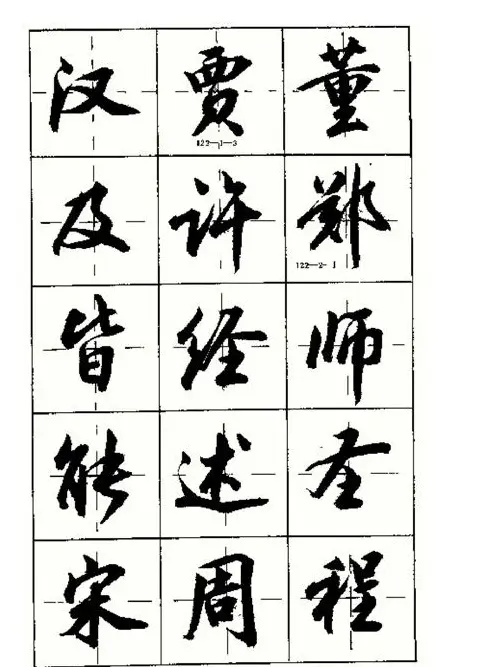 汉贾董
122—1—3
及许郑
122—2-1
皆经师
能述圣
宋周程